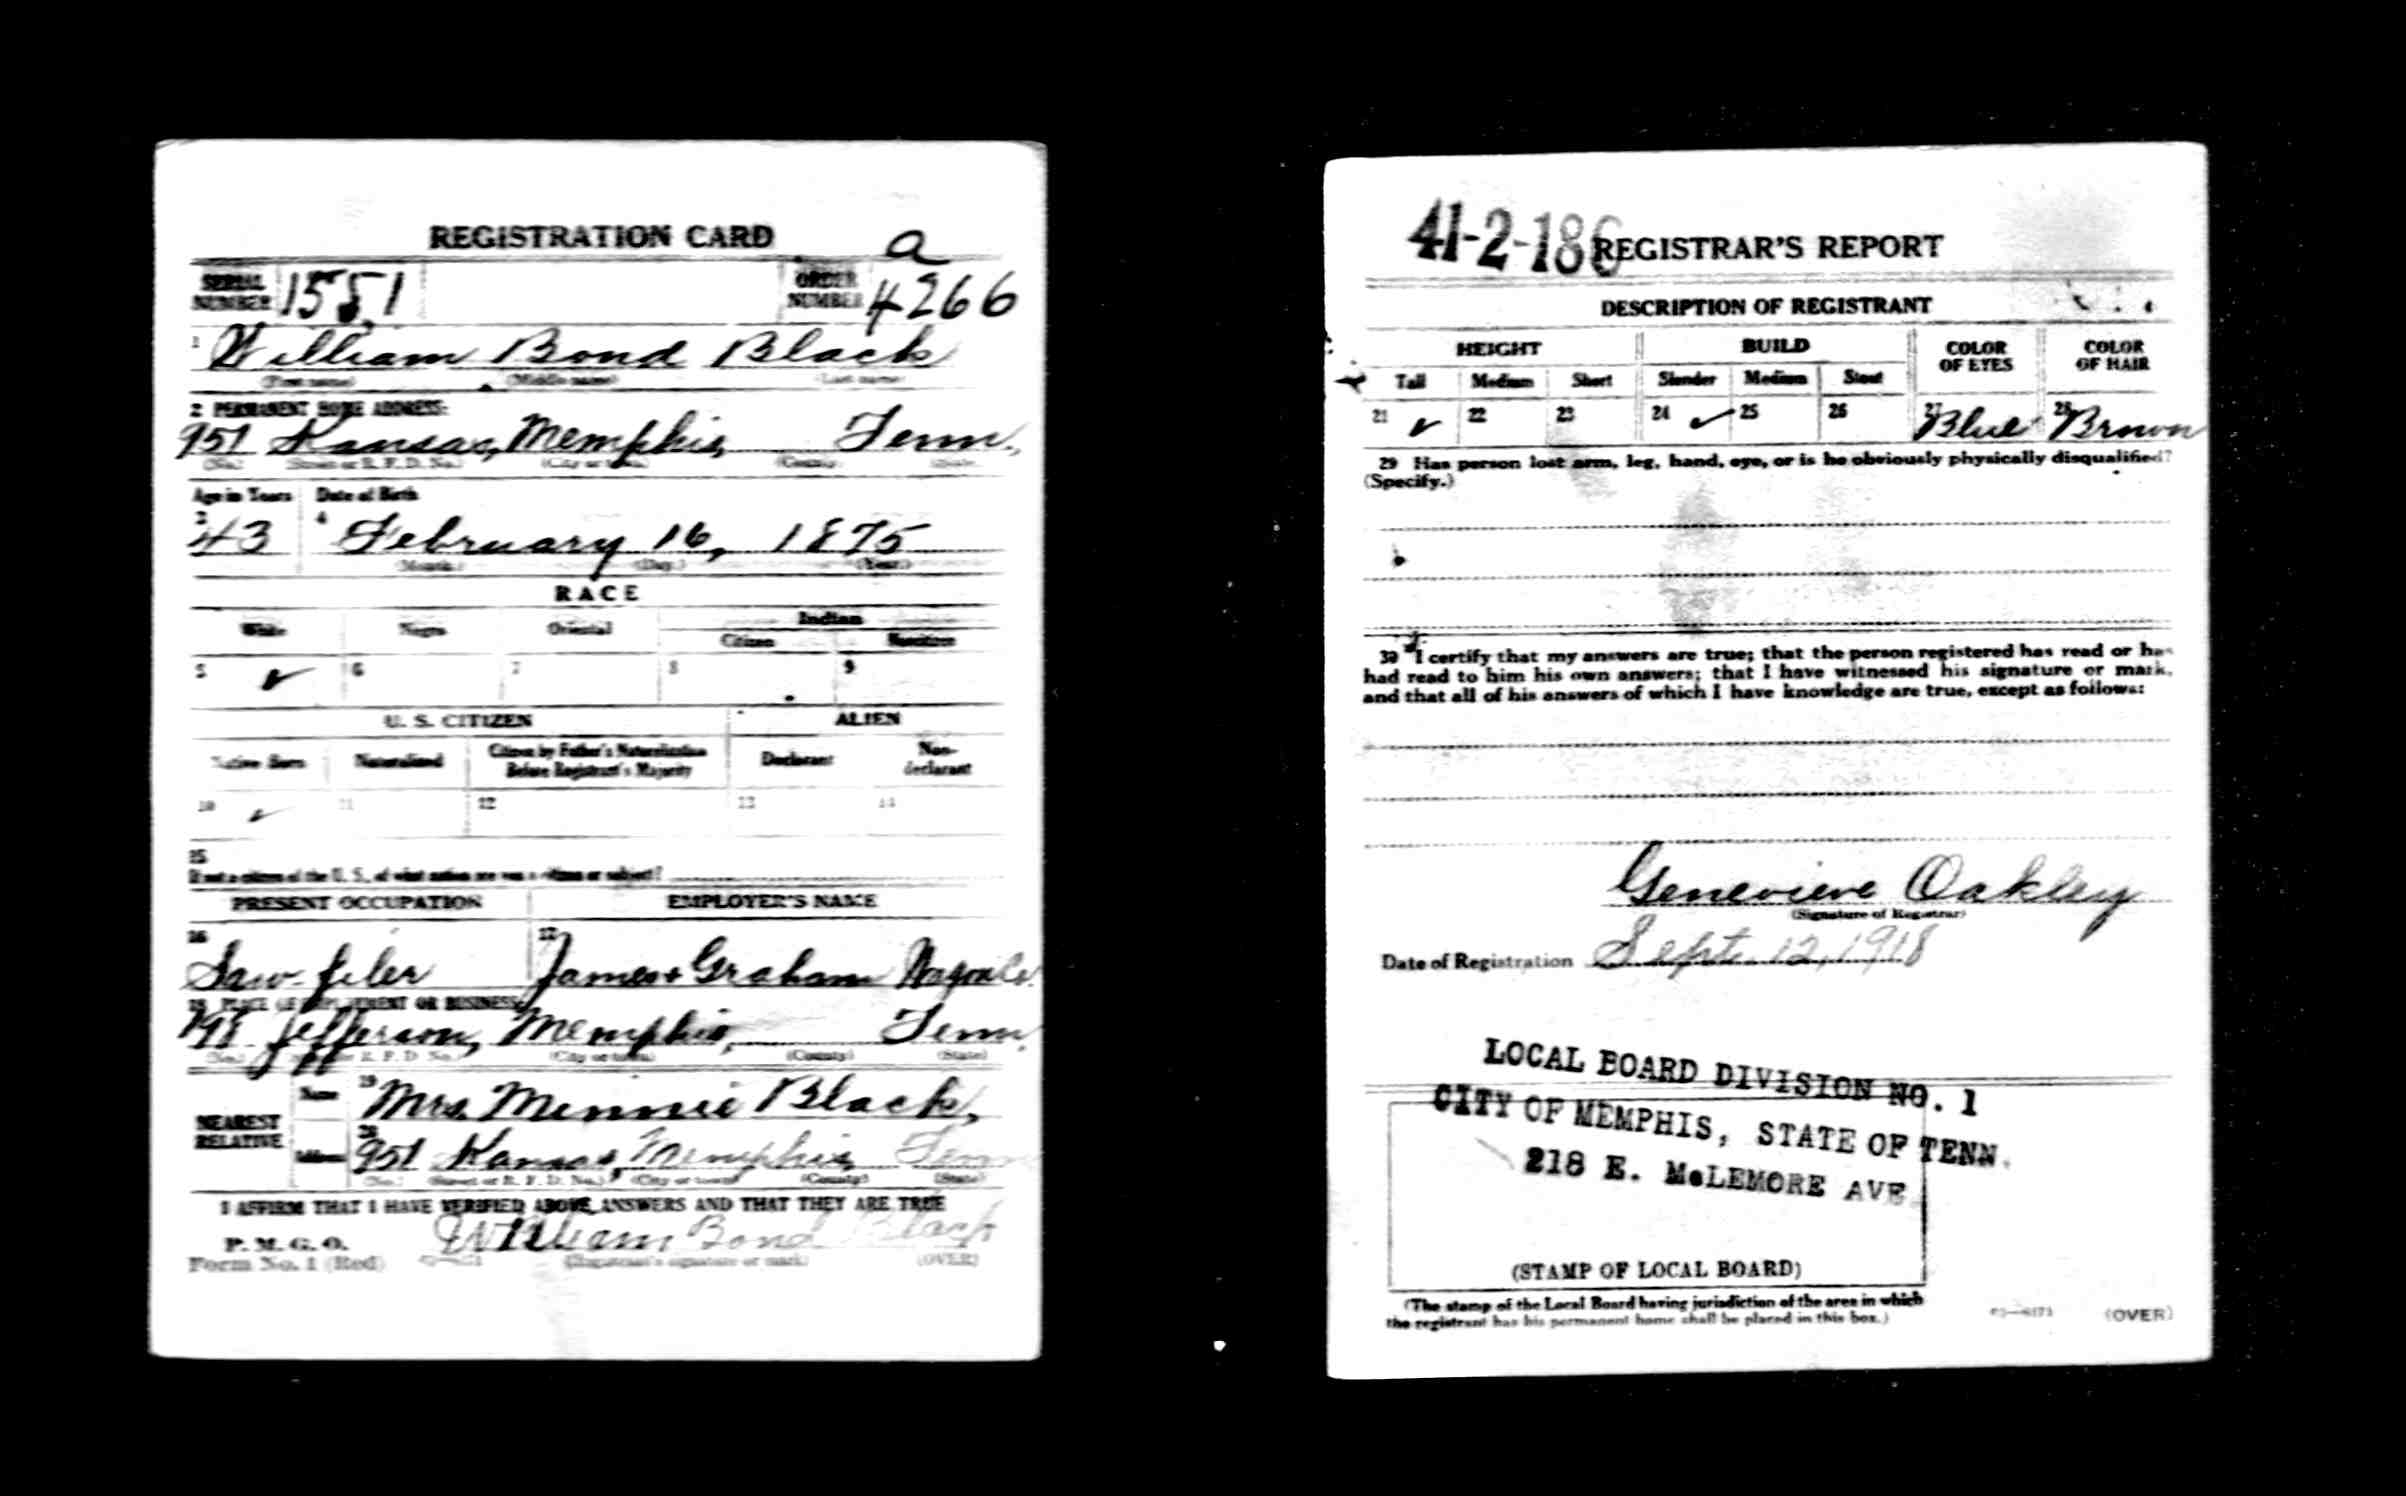 REGISTRATION CARD
a
SERIAL NUMBER 1551 ORDER NUMBER 4266
1 William Bond Black
(First name) (Middle name) (Last name)
2 PERMANENT HOME ADDRESS:
951 Kansas, Memphis, Tenn.
(No.) (Street or R. F. D. No.) (City or town) (County) (State)
Age in Years Date of Birth
3 43 4 February 16, 1875
(Month.) (Day.) (Year.)
RACE
White Negro Oriental Indian
Citizen Noncitizen
5 ✓ 6 7 8 9
U. S. CITIZEN ALIEN
Native Born Naturalized Citizen by Father's Naturalization Before Registrant's Majority Declarant Non-declarant
10 ✓ 11 12 13 14
15
If not a citizen of the U. S., of what nation are you a citizen or subject?
PRESENT OCCUPATION EMPLOYER'S NAME
16 Saw-filer 17 James & Graham Wagon Co.
18 PLACE OF EMPLOYMENT OR BUSINESS:
Jefferson, Memphis, Tenn.
(No.) (Street or R. F. D. No.) (City or town) (County) (State)
NEAREST RELATIVE Name 19 Mrs. Minnie Black,
Address 20 951 Kansas, Memphis, Tenn
(No.) (Street or R. F. D. No.) (City or town) (County) (State)
I AFFIRM THAT I HAVE VERIFIED ABOVE ANSWERS AND THAT THEY ARE TRUE
P. M. G. O.
Form No. 1 (Red) William Bond Black
(Registrant's signature or mark) (OVER)
41-2-186 REGISTRAR'S REPORT
DESCRIPTION OF REGISTRANT
HEIGHT BUILD COLOR OF EYES COLOR OF HAIR
Tall Medium Short Slender Medium Stout
21 ✓ 22 23 24 ✓ 25 26 27 Blue 28 Brown
29 Has person lost arm, leg, hand, eye, or is he obviously physically disqualified?
(Specify.)
30 I certify that my answers are true; that the person registered has read or has
had read to him his own answers; that I have witnessed his signature or mark,
and that all of his answers of which I have knowledge are true, except as follows:
Genevieve Oakley
(Signature of Registrar)
Date of Registration Sept. 12, 1918
LOCAL BOARD DIVISION NO. 1
CITY OF MEMPHIS, STATE OF TENN.
218 E. McLEMORE AVE
(STAMP OF LOCAL BOARD)
(The stamp of the Local Board having jurisdiction of the area in which
the registrant has his permanent home shall be placed in this box.)
(OVER)